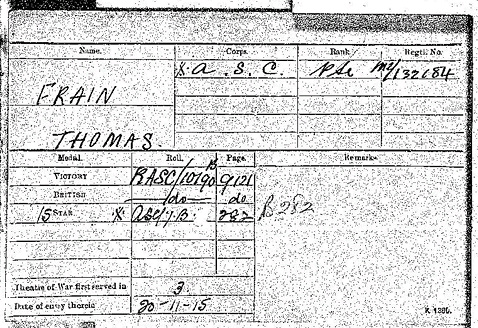 Name. Corps. Rank Regtl. No.
X. A. S. C. Pte M2/132684
FRAIN
THOMAS.
Medal. Roll. Page. Remarks.
VICTORY RASC/101 90 B 9121
BRITISH do do
15 STAR X. ASC/7.B. 282 B 282
Theatre of War first served in 3
Date of entry therein 20-11-15
K 1380.